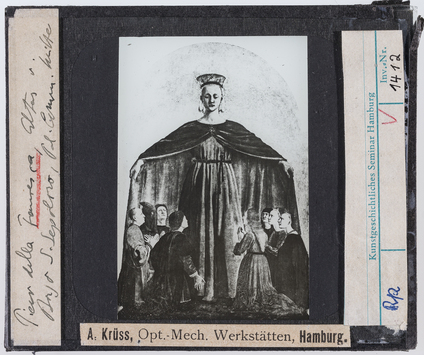 Piero della Francesca, Altar i.
Borgo S. Sepolcro, Pal. Comm. Mitte
A. Krüss, Opt.-Mech. Werkstätten, Hamburg.
Kunstgeschichtliches Seminar Hamburg
Inv.-Nr.
1412